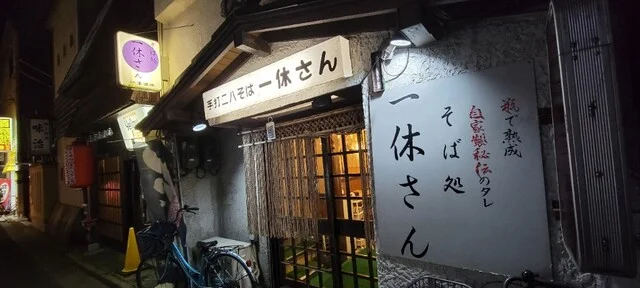 一休さん
手打二八そば 一休さん
瓶で熟成
自家製秘伝のタレ
そば処
一休さん